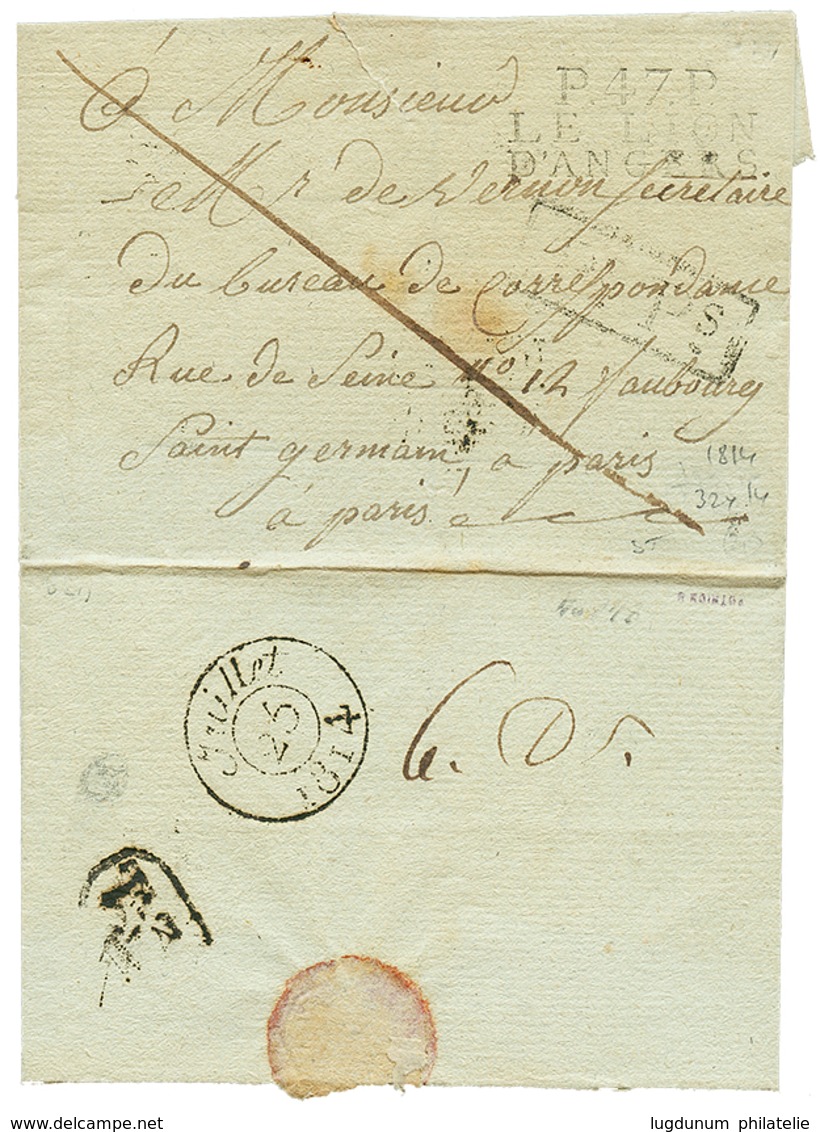 à Monsieur
P.47.P.
LE LION
D'ANGERS
Mr de Vernon Secretaire
du bureau de Correspondance
P.s
Rue de Seine No 12 faubourg
Saint germain, a paris
à paris
1814
Juillet
25
1814
6. D
delcampe.net
lugdunum philatelie